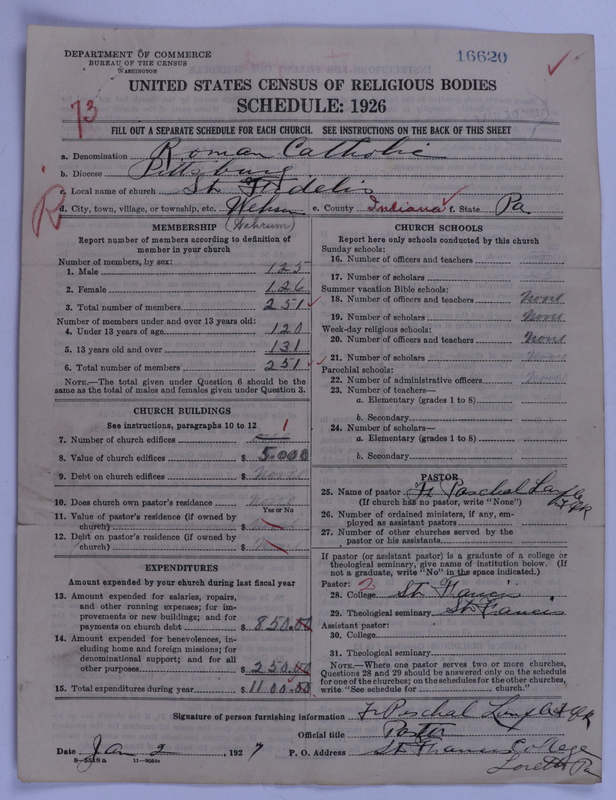 DEPARTMENT OF COMMERCE
BUREAU OF THE CENSUS
WASHINGTON
16620
UNITED STATES CENSUS OF RELIGIOUS BODIES
SCHEDULE: 1926
73
FILL OUT A SEPARATE SCHEDULE FOR EACH CHURCH. SEE INSTRUCTIONS ON THE BACK OF THIS SHEET
a. Denomination Roman Catholic
b. Diocese Pittsburg
c. Local name of church St Fidelis
R
d. City, town, village, or township, etc. e. County Indiana f. State Pa
(Wehrum)
MEMBERSHIP
Report number of members according to definition of member in your church
Number of members, by sex:
1. Male 125
2. Female 126
3. Total number of members 251
Number of members under and over 13 years old:
4. Under 13 years of age 120
5. 13 years old and over 131
6. Total number of members 251
NOTE.—The total given under Question 6 should be the same as the total of males and females given under Question 3.
CHURCH BUILDINGS
See instructions, paragraphs 10 to 12
7. Number of church edifices 1
8. Value of church edifices $ 5.000
9. Debt on church edifices $ None
10. Does church own pastor's residence
Yes or No
11. Value of pastor's residence (if owned by church) $
12. Debt on pastor's residence (if owned by church) $
EXPENDITURES
Amount expended by your church during last fiscal year
13. Amount expended for salaries, repairs, and other running expenses; for improvements or new buildings; and for payments on church debt $ 850.00
14. Amount expended for benevolences, including home and foreign missions; for denominational support; and for all other purposes $ 250.00
15. Total expenditures during year $ 1100.00
CHURCH SCHOOLS
Report here only schools conducted by this church
Sunday schools:
16. Number of officers and teachers
17. Number of scholars
Summer vacation Bible schools:
18. Number of officers and teachers None
19. Number of scholars None
Week-day religious schools:
20. Number of officers and teachers None
21. Number of scholars None
Parochial schools:
22. Number of administrative officers
23. Number of teachers—
a. Elementary (grades 1 to 8)
b. Secondary
24. Number of scholars—
a. Elementary (grades 1 to 8)
b. Secondary
PASTOR
25. Name of pastor Fr Paschal
(If church has no pastor, write "None")
26. Number of ordained ministers, if any, employed as assistant pastors
27. Number of other churches served by the pastor or his assistants
If pastor (or assistant pastor) is a graduate of a college or theological seminary, give name of institution below. (If not a graduate, write "No" in the space indicated.)
Pastor: 2
28. College St. Francis
29. Theological seminary St. Francis
Assistant pastor:
30. College
31. Theological seminary
NOTE.—Where one pastor serves two or more churches, Questions 28 and 29 should be answered only on the schedule for one of the churches; on the schedules for the other churches, write "See schedule for church."
Signature of person furnishing information Fr Paschal
Official title Pastor
Date Jan 2, 1927 P. O. Address St. Francis College
Loretto Pa
8-5518a 11-9064c